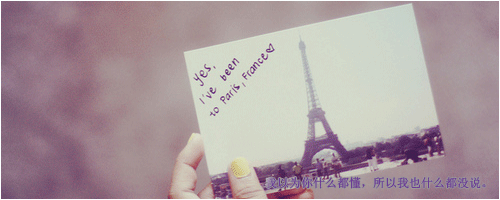 yes,
I've been
to Paris, France♡
我以为你什么都懂，所以我也什么都没说。